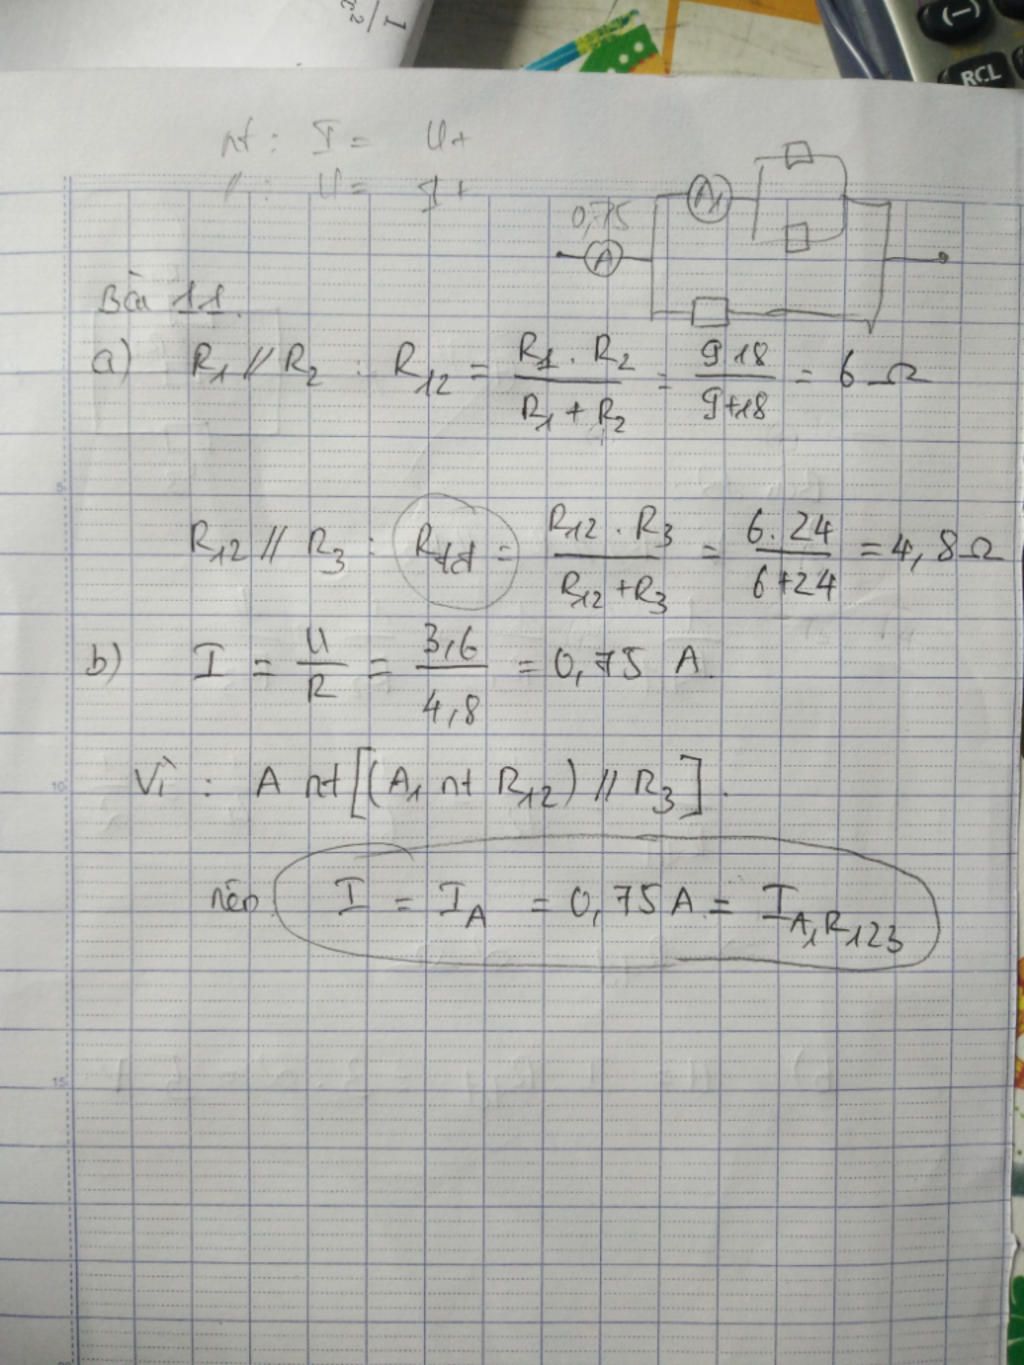 1
x²
(-)
RCL
nt : I = U+
// : U = I+
0,75
A1
A
Bài 11.
a) R1 // R2 : R12 = R1 . R2 / R1 + R2 = 9.18 / 9+18 = 6 Ω
R12 // R3 : Rtđ = R12 . R3 / R12 + R3 = 6.24 / 6+24 = 4,8 Ω
b) I = U / R = 3,6 / 4,8 = 0,75 A.
Vì : A nt [(A1 nt R12) // R3] .
nên I = IA = 0,75 A = IA1R123